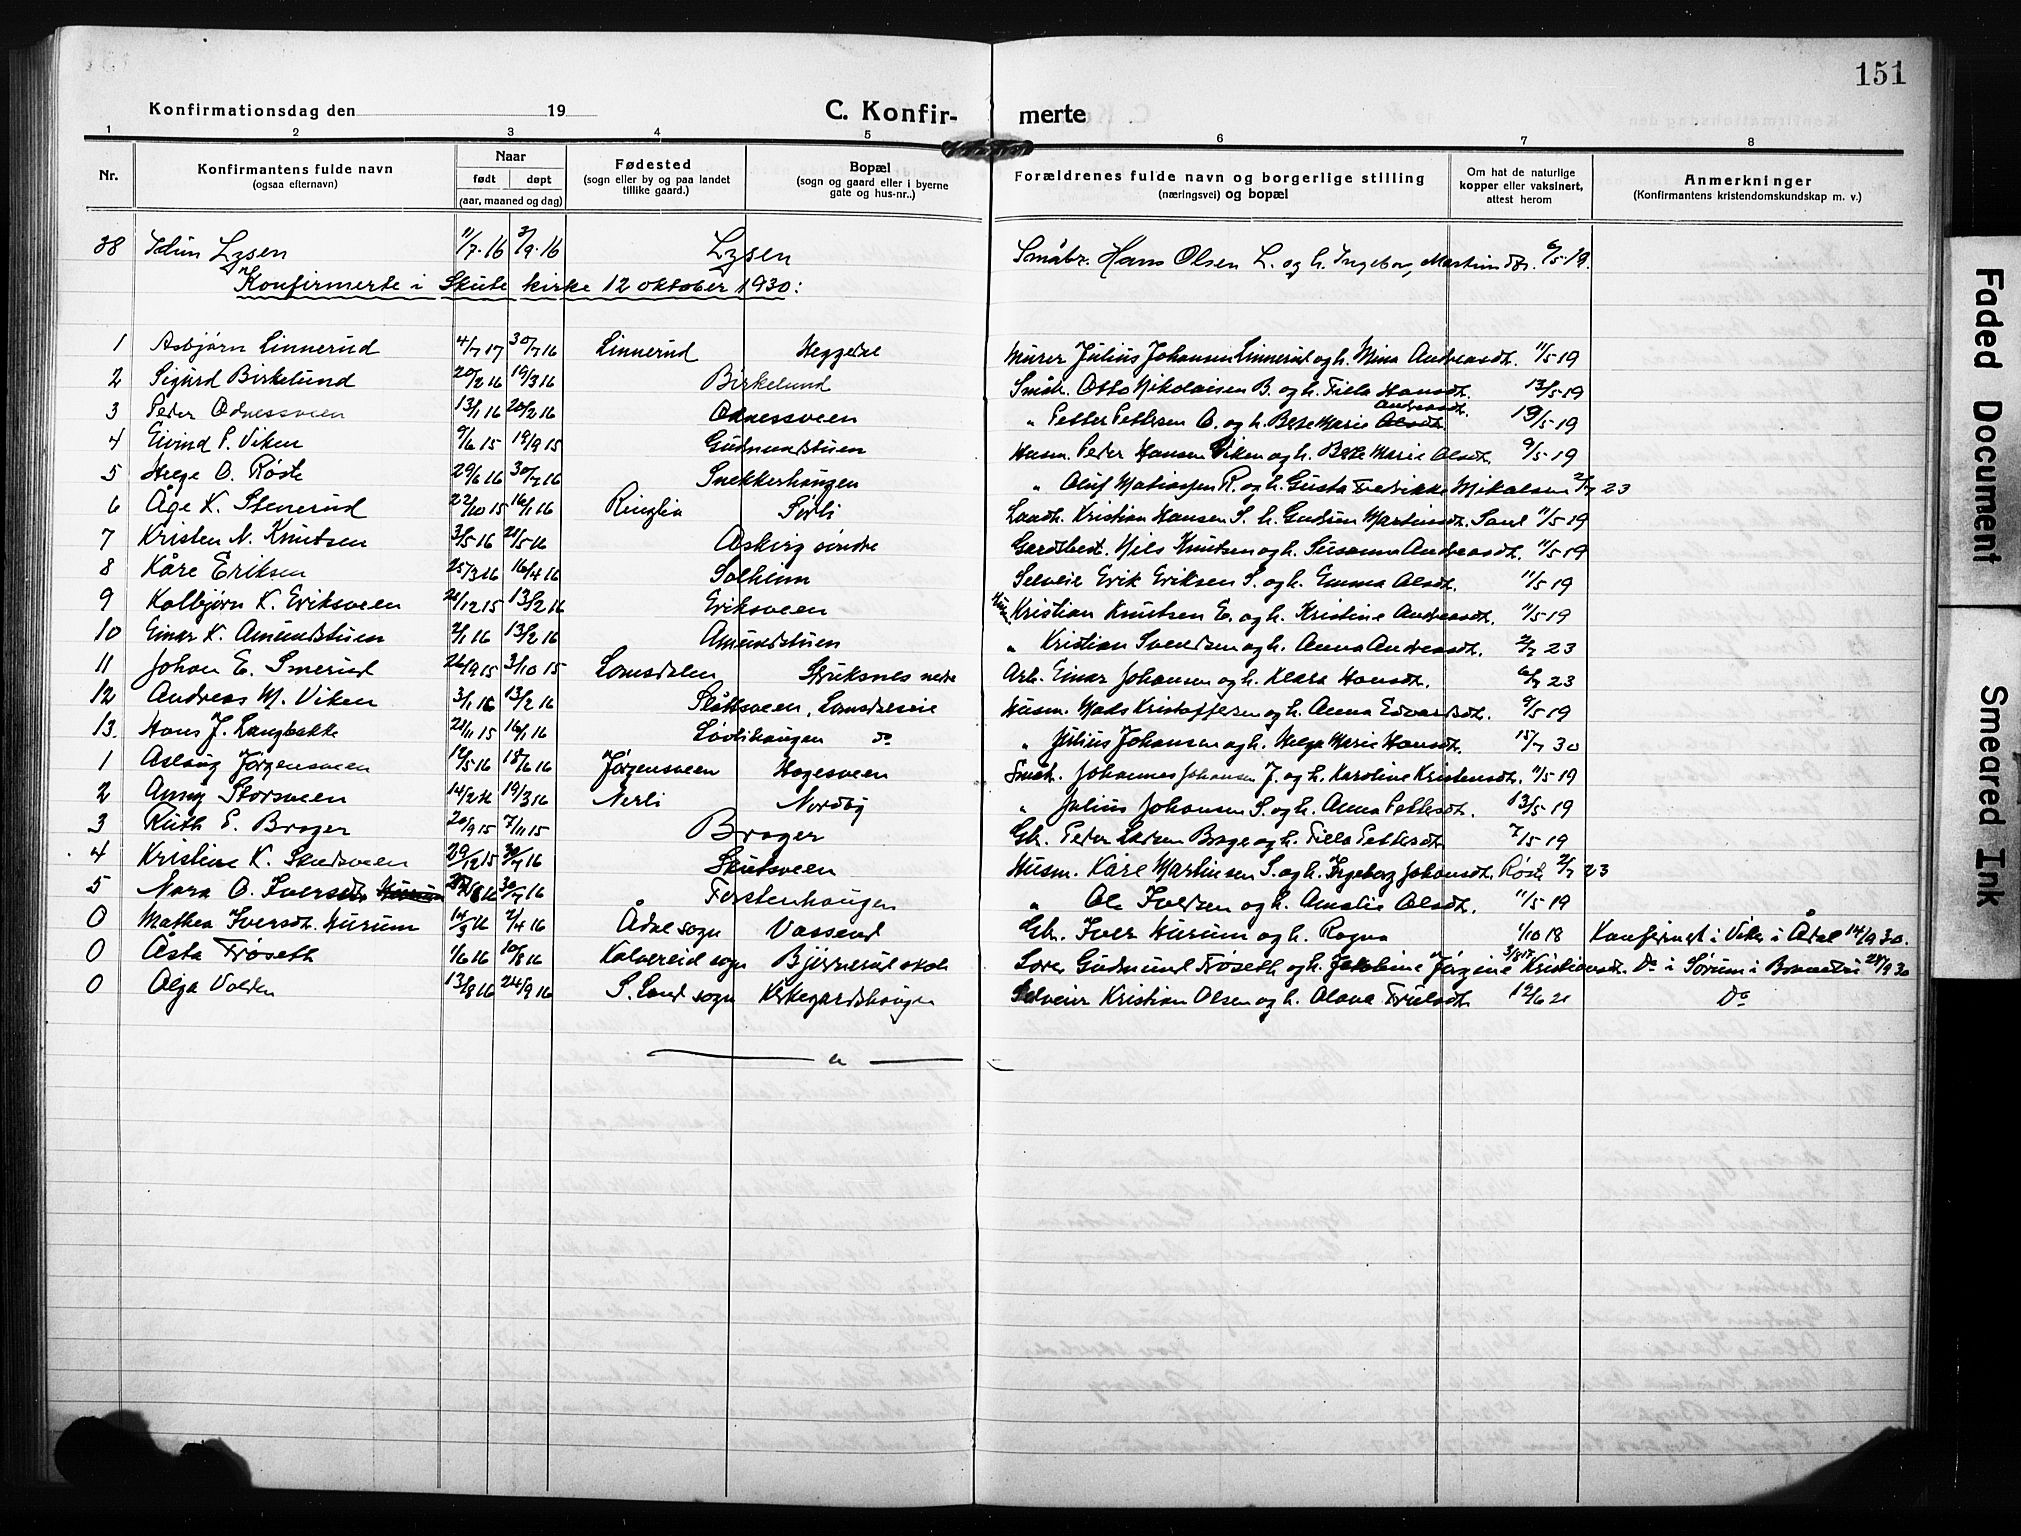 151
Konfirmationsdag den 19 C. Konfir- merte
1 2 3 4 5 6 7 8
Nr. Konfirmantens fulde navn (ogsaa efternavn) Naar født døpt (aar, maaned og dag) Fødested (sogn eller by og paa landet tillike gaard.) Bopæl (sogn og gaard eller i byerne gate og hus-nr..) Forældrenes fulde navn og borgerlige stilling (næringsvei) og bopæl Om hat de naturlige kopper eller vaksinert, attest herom Anmerkninger (Konfirmantens kristendomskundskap m. v.)
38 Idun Lysen 11/7·16 3/9·16 Lysen Småbr. Hans Olsen L. og h. Ingebor, Martinsdtr. 6/5·19.
Konfirmerte i Skute kirke 12 oktober 1930:
1 Asbjørn Linnerud 4/7 17 30/7 16 Linnerud Heggedal Murer Julius Johansen Linnerud og h. Mina Andreasdt. 11/5-19
2 Sigurd Birkelund 20/2 16 19/3 16 Birkelund Småbr. Otto Nikolaisen B. og h. Tilla Hansdt. 13/5-19
3 Peder Odnessveen 13/1 16 20/2 16 Odnessveen " Petter Pettersen O. og h. Berte Marie Andreasdt. 19/5-19
4 Eivind P. Viken 9/6 15 19/9 15 Gudmundstuen Husm. Peder Hansen Viken og h. Berte Marie Olsdt. 9/5-19
5 Helge O. Røste 29/6 16 30/7 16 Snekkerhaugen " Oluf Matiassen R. og h. Gusta Fredrikke Nikolsen 2/7 23
6 Åge K. Stenerud 22/10 15 16/1 16 Ringlia Sørli Landh. Kristian Hansen S. h. Gudrun Martinsdt. Sand 11/5-19
7 Kristen N. Knutsen 3/5 16 21/5 16 Askvig søndre Gårdbest. Nils Knutsen og h. Susanna Andreasdt. 11/5-19
8 Kåre Eriksen 25/3 16 16/4 16 Solheim Selveie Erik Eriksen S. og h. Emma Olsdt. 11/5 19
9 Kolbjørn K. Eriksveen 21/12 15 13/2 16 Eriksveen Husm Kristian Knutsen E. og h. Kristine Andreasdt. 11/5-19
10 Einar K. Amundstuen 2/1 16 13/2 16 Amundstuen " Kristian Svendsen og h. Anna Andreasdt. 2/7 23
11 Johan E. Smerud 26/9 15 3/10 15 Lomsdalen Struksnes nedre Arb. Einar Johansen og h. Klara Hansdt. 6/7 23
12 Andreas M. Viken 3/1 16 13/2 16 Slåttsveen, Lomsdalseie Husm. Mads Kristoffersen og h. Anna Edvardsdt. 9/5-19
13. Hans J. Langbakke 21/11 15 16/1 16 Løvlihaugen do " Julius Johansen og h. Helga Marie Hansdt. 15/7 30
1 Aslaug Jørgensveen 19/5 16 18/6 16 Jørgensveen Hagesveen Småb. Johannes Johansen J. og h. Karoline Kristensdt. 11/5-19
2 Anny Storsveen 14/2 16 19/3 16 Nerli Nordby " Julius Johansen S. og h. Anna Pettersdt. 13/5-19
3 Ruth P. Brager 20/9 15 7/11 15 Brager Gbr. Peder Larsen Brage og h. Tilla Pettersdt. 7/5-19
4 Kristine K. Skutsveen 29/12 15 30/4 16 Skutsveen Husm. Kåre Martinsen S. og h. Ingeborg Johansdt. Røste 2/7 23
5 Nora O. Iversdt. 16 30/7 16 Torstenhaugen " Ole Iversen og h. Amalie Olsdt. 11/5-19
0 Mathea Iversdt. Hurum 14/3 16 2/4 16 Ådal sogn Vassend Gbr. Iver Hurum og h. Ragna 1/10 18 Konfirmert i Viker i Ådal 14/9 30.
0 Åsta Frøseth 1/6 16 10/8 16 Kalvereid sogn Bjørnerud skole Lærer Gudmund Frøseth og h. Jørgine Kristiansdt. 3/8 17 Do i Sørum i Brandbu 28/9 30
0 Olga Volden 13/8 16 24/9 16 S. Land sogn Kirkegardshaugen Selveier Kristian Olsen og h. Olava Trulsdt. 12/6 21 Do
Faded Document
Smeared Ink